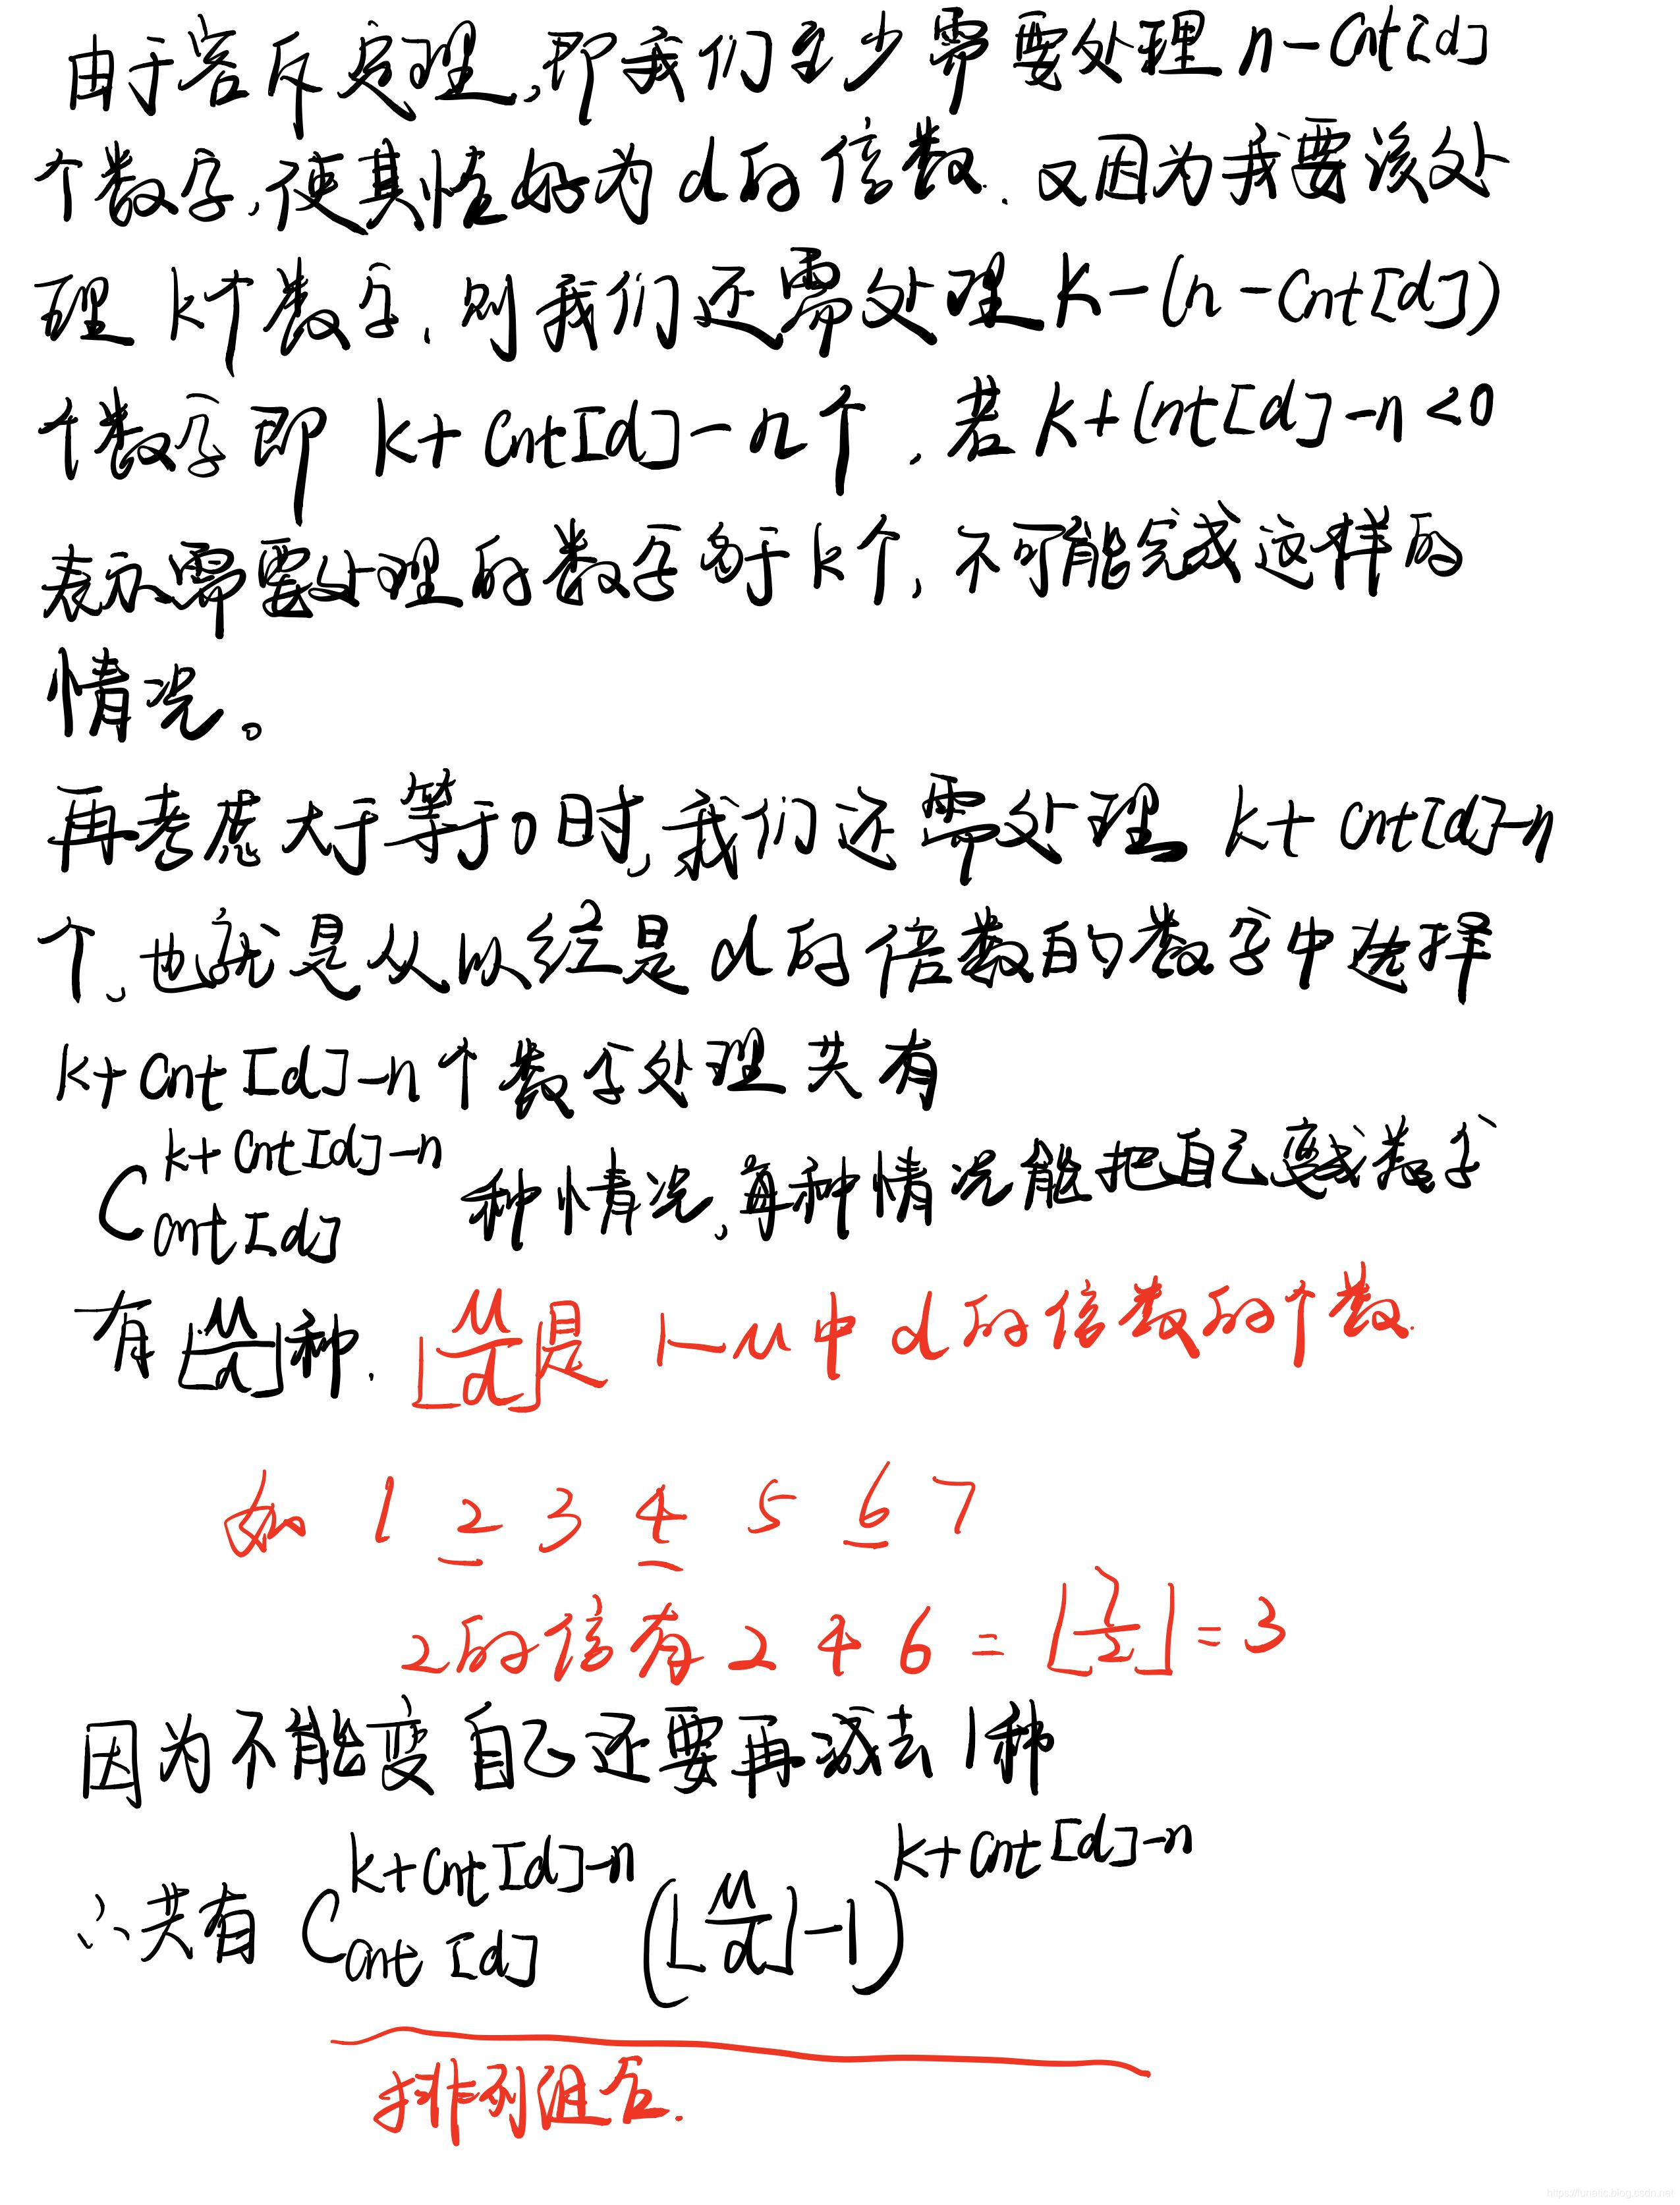 由于容斥定理,即我们至少需要处理 n-Cnt[d]
个数字,使其恰好为d的倍数.又因为我要该处
理 k个数字,则我们还需处理K-(n-Cnt[d])
个数字即 k+Cnt[d]-n个,若K+Cnt[d]-n<0
表示需要处理的数字多于k个,不可能完成这样的
情况。
再考虑大于等于0时,我们还需处理 k+Cnt[d]-n
个,也就是从以经是d的倍数的数字中选择
k+Cnt[d]-n个数字处理共有
C_{Cnt[d]}^{k+Cnt[d]-n} 种情况,每种情况能把自己变成数字
有⌊M/d⌋种. ⌊M/d⌋是 1-M中d的倍数的个数.
如 1 2 3 4 5 6 7
2的倍有2 4 6 = ⌊7/2⌋ = 3
因为不能变自己还要再减去1种
∴共有 C_{Cnt[d]}^{k+Cnt[d]-n} (⌊M/d⌋-1)^{k+Cnt[d]-n}
排列组合.